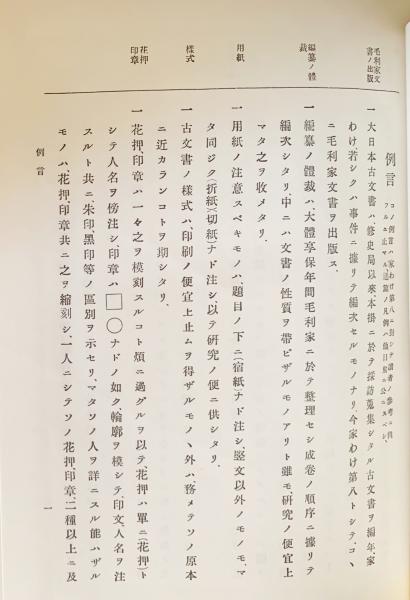 例言
コノ例言ハ家わけ第八ニ對シテ讀者ノ參考ニ具
フルニ止マル、追テ第一ノ凡例ハ他日別ニ公ニスベシ、
毛利家文書ノ出版
一大日本古文書ハ、修史局以來本掛ニ於テ採訪蒐集シタル古文書ヲ編年、家
わけ若シクハ事件ニ據リテ編次セルモノナリ、今家わけ第八トシテ、コヽ
ニ毛利家文書ヲ出版ス、
編纂ノ體裁
一編纂ノ體裁ハ、大體享保年間毛利家ニ於テ整理セシ成卷ノ順序ニ據リテ
編次シタリ、中ニハ文書ノ性質ヲ帶ビザルモノアリト雖モ研究ノ便宜上
マタ之ヲ收メタリ、
用紙
一用紙ノ注意スベキモノハ、題目ノ下ニ(宿紙)ナド注シ、竪文以外ノモノモ、マ
タ同ジク(折紙)(切紙)ナド注シ、以テ研究ノ便ニ供シタリ、
樣式
一古文書ノ樣式ハ、印刷ノ便宜上止ムヲ得ザルモノヽ外ハ務メテソノ原本
ニ近カランコトヲ期シタリ、
花押印章
一花押、印章ハ一々之ヲ模刻スルコト煩ニ過グルヲ以テ花押ハ單ニ(花押)ト
シテ人名ヲ傍注シ、印章ハ□○ナドノ如ク、輪廓ヲ模シテ、印文、人名ヲ注
スルト共ニ、朱印、黑印等ノ區別ヲ示セリ、マタソノ人ヲ詳ニスル能ハザル
モノハ花押、印章共ニ之ヲ縮刻シ、一人ニシテソノ花押、印章、二種以上ニ及
例言
一